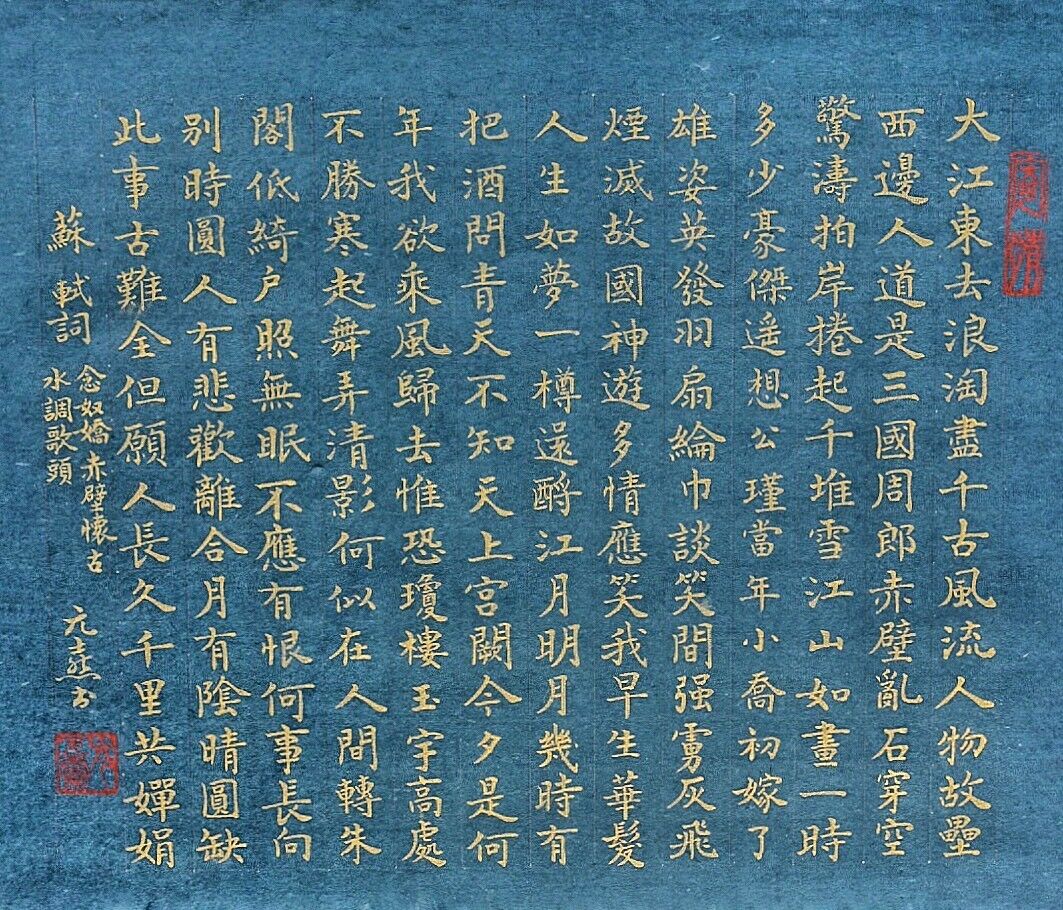 大江東去浪淘盡千古風流人物故壘
西邊人道是三國周郎赤壁亂石穿空
驚濤拍岸捲起千堆雪江山如畫一時
多少豪傑遥想公瑾當年小喬初嫁了
雄姿英發羽扇綸巾談笑間强虜灰飛
煙滅故國神遊多情應笑我早生華髮
人生如夢一樽還酹江月明月幾時有
把酒問青天不知天上宮闕今夕是何
年我欲乘風歸去惟恐瓊樓玉宇高處
不勝寒起舞弄清影何似在人間轉朱
閣低綺户照無眠不應有恨何事長向
別時圓人有悲歡離合月有陰晴圓缺
此事古難全但願人長久千里共嬋娟
蘇軾詞
念奴嬌赤壁懷古
水調歌頭